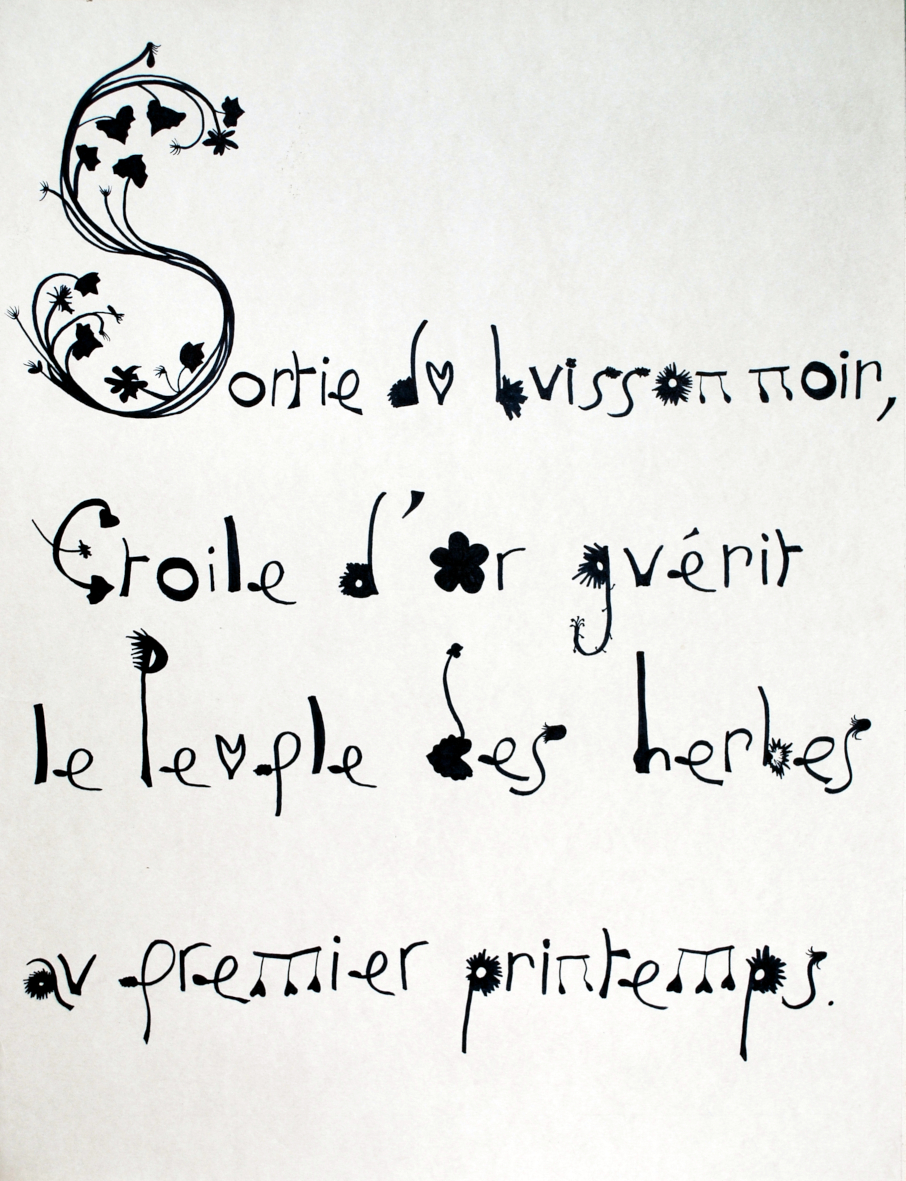 Sortie du buisson noir,
Etoile d'or guérit
le Peuple des herbes
au premier printemps.